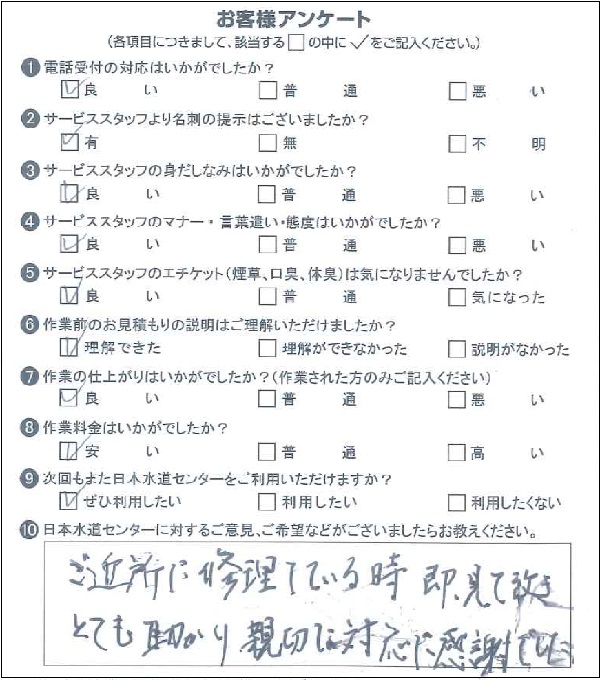 お客様アンケート
(各項目につきまして、該当する□の中に✓をご記入ください。)
❶ 電話受付の対応はいかがでしたか?
☑ 良い □ 普通 □ 悪い
❷ サービススタッフより名刺の提示はございましたか?
☑ 有 □ 無 □ 不明
❸ サービススタッフの身だしなみはいかがでしたか?
☑ 良い □ 普通 □ 悪い
❹ サービススタッフのマナー・言葉遣い・態度はいかがでしたか?
☑ 良い □ 普通 □ 悪い
❺ サービススタッフのエチケット(煙草、口臭、体臭)は気になりませんでしたか?
☑ 良い □ 普通 □ 気になった
❻ 作業前のお見積もりの説明はご理解いただけましたか?
☑ 理解できた □ 理解ができなかった □ 説明がなかった
❼ 作業の仕上がりはいかがでしたか?(作業された方のみご記入ください)
☑ 良い □ 普通 □ 悪い
❽ 作業料金はいかがでしたか?
☑ 安い □ 普通 □ 高い
❾ 次回もまた日本水道センターをご利用いただけますか?
☑ ぜひ利用したい □ 利用したい □ 利用したくない
❿ 日本水道センターに対するご意見、ご希望などがございましたらお教えください。
ご近所に修理している時 即、見て頂き
とても助かり 親切な対応に感謝でした